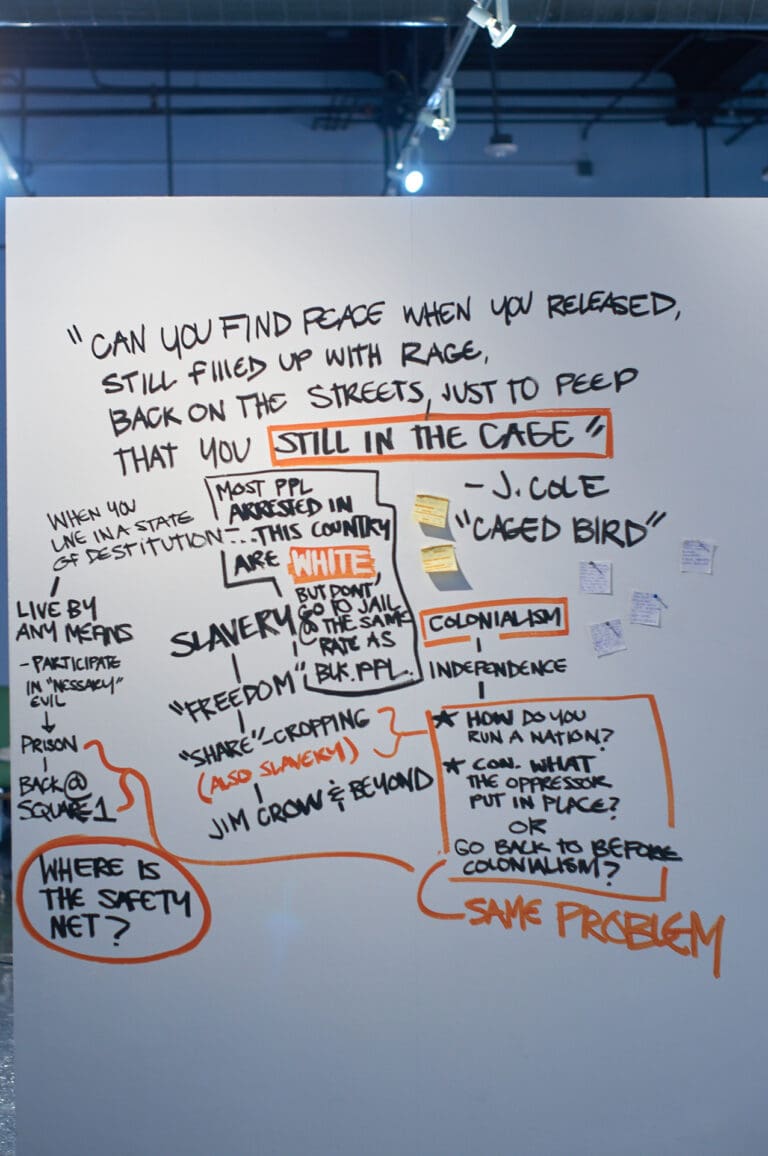 "CAN YOU FIND PEACE WHEN YOU RELEASED,
STILL FILLED UP WITH RAGE,
BACK ON THE STREETS, JUST TO PEEP
THAT YOU STILL IN THE CAGE"
- J. COLE
"CAGED BIRD"
WHEN YOU
LIVE IN A STATE
OF DESTITUTION
LIVE BY
ANY MEANS
- PARTICIPATE
IN "NESSARY"
EVIL
PRISON
BACK @
SQUARE 1
WHERE IS
THE SAFETY
NET?
MOST PPL
ARRESTED IN
...THIS COUNTRY
ARE WHITE
BUT DONT
GO TO JAIL
@ THE SAME
RATE AS
BLK. PPL.
SLAVERY
"FREEDOM"
"SHARE"-CROPPING
(ALSO SLAVERY)
JIM CROW & BEYOND
COLONIALISM
INDEPENDENCE
★ HOW DO YOU
RUN A NATION?
★ CON. WHAT
THE OPPRESSOR
PUT IN PLACE?
OR
GO BACK TO BEFORE
COLONIALISM?
SAME PROBLEM